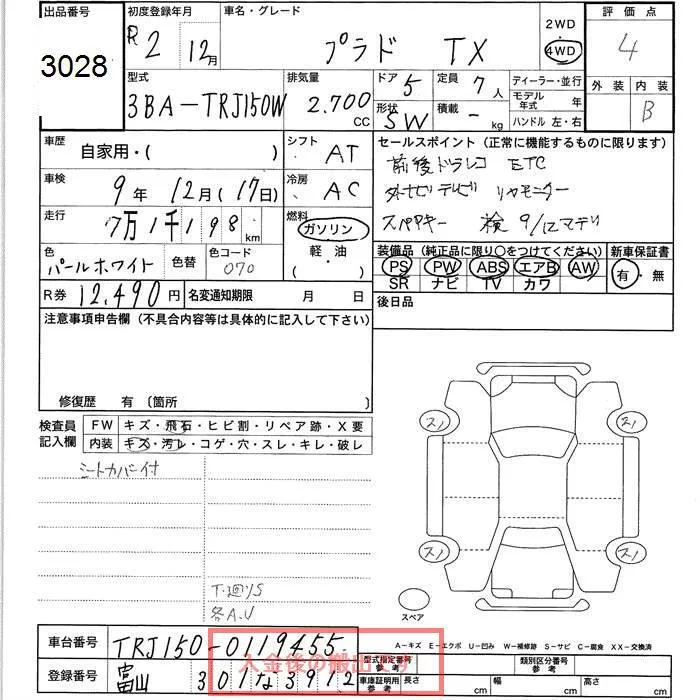 出品番号 3028
初度登録年月 R2 12月
車名・グレード プラド TX
2WD
4WD
評価点 4
外装 内装 B
型式 3BA-TRJ150W
排気量 2.700 CC
ドア 5 定員 7人
形状 SW 積載 - kg
ディーラー・並行
モデル年式 年
ハンドル 左・右
車歴 自家用・( )
シフト AT
車検 9年12月(17日)
冷房 AC
走行 7万1千198 km
燃料 ガソリン・軽・油・( )
色 パールホワイト 色替 色コード 070
R券 12,490円 名変通知期限 月 日
セールスポイント (正常に機能するものに限ります)
前後ドラレコ ETC
ナビ テレビ リヤモニター
スペアキー 検9/12マデ
装備品 (純正品に限り○をつけてください)
新車保証書
PS PW ABS エアB AW
有・無
SR ナビ TV カワ
後日品
注意事項申告欄 (不具合内容等は具体的に記入して下さい)
修復歴 有 〔箇所 〕
検査員記入欄
FW キズ・飛石・ヒビ割・リペア跡・X要
内装 キズ・汚レ・コゲ・穴・スレ・キレ・破レ
シートカバー付
T.廻りS
各A.U
スノ スノ
スノ スノ
スペア
A－キズ E－エクボ U－凹み W－補修跡 S－サビ C－腐食 XX－交換済
車台番号 TRJ150-0119455
入金後の搬出です
型式指定番号 参考
類別区分番号 参考
登録番号 富山 301な3912
車庫証明用 参考 長さ cm 幅 cm 高さ cm